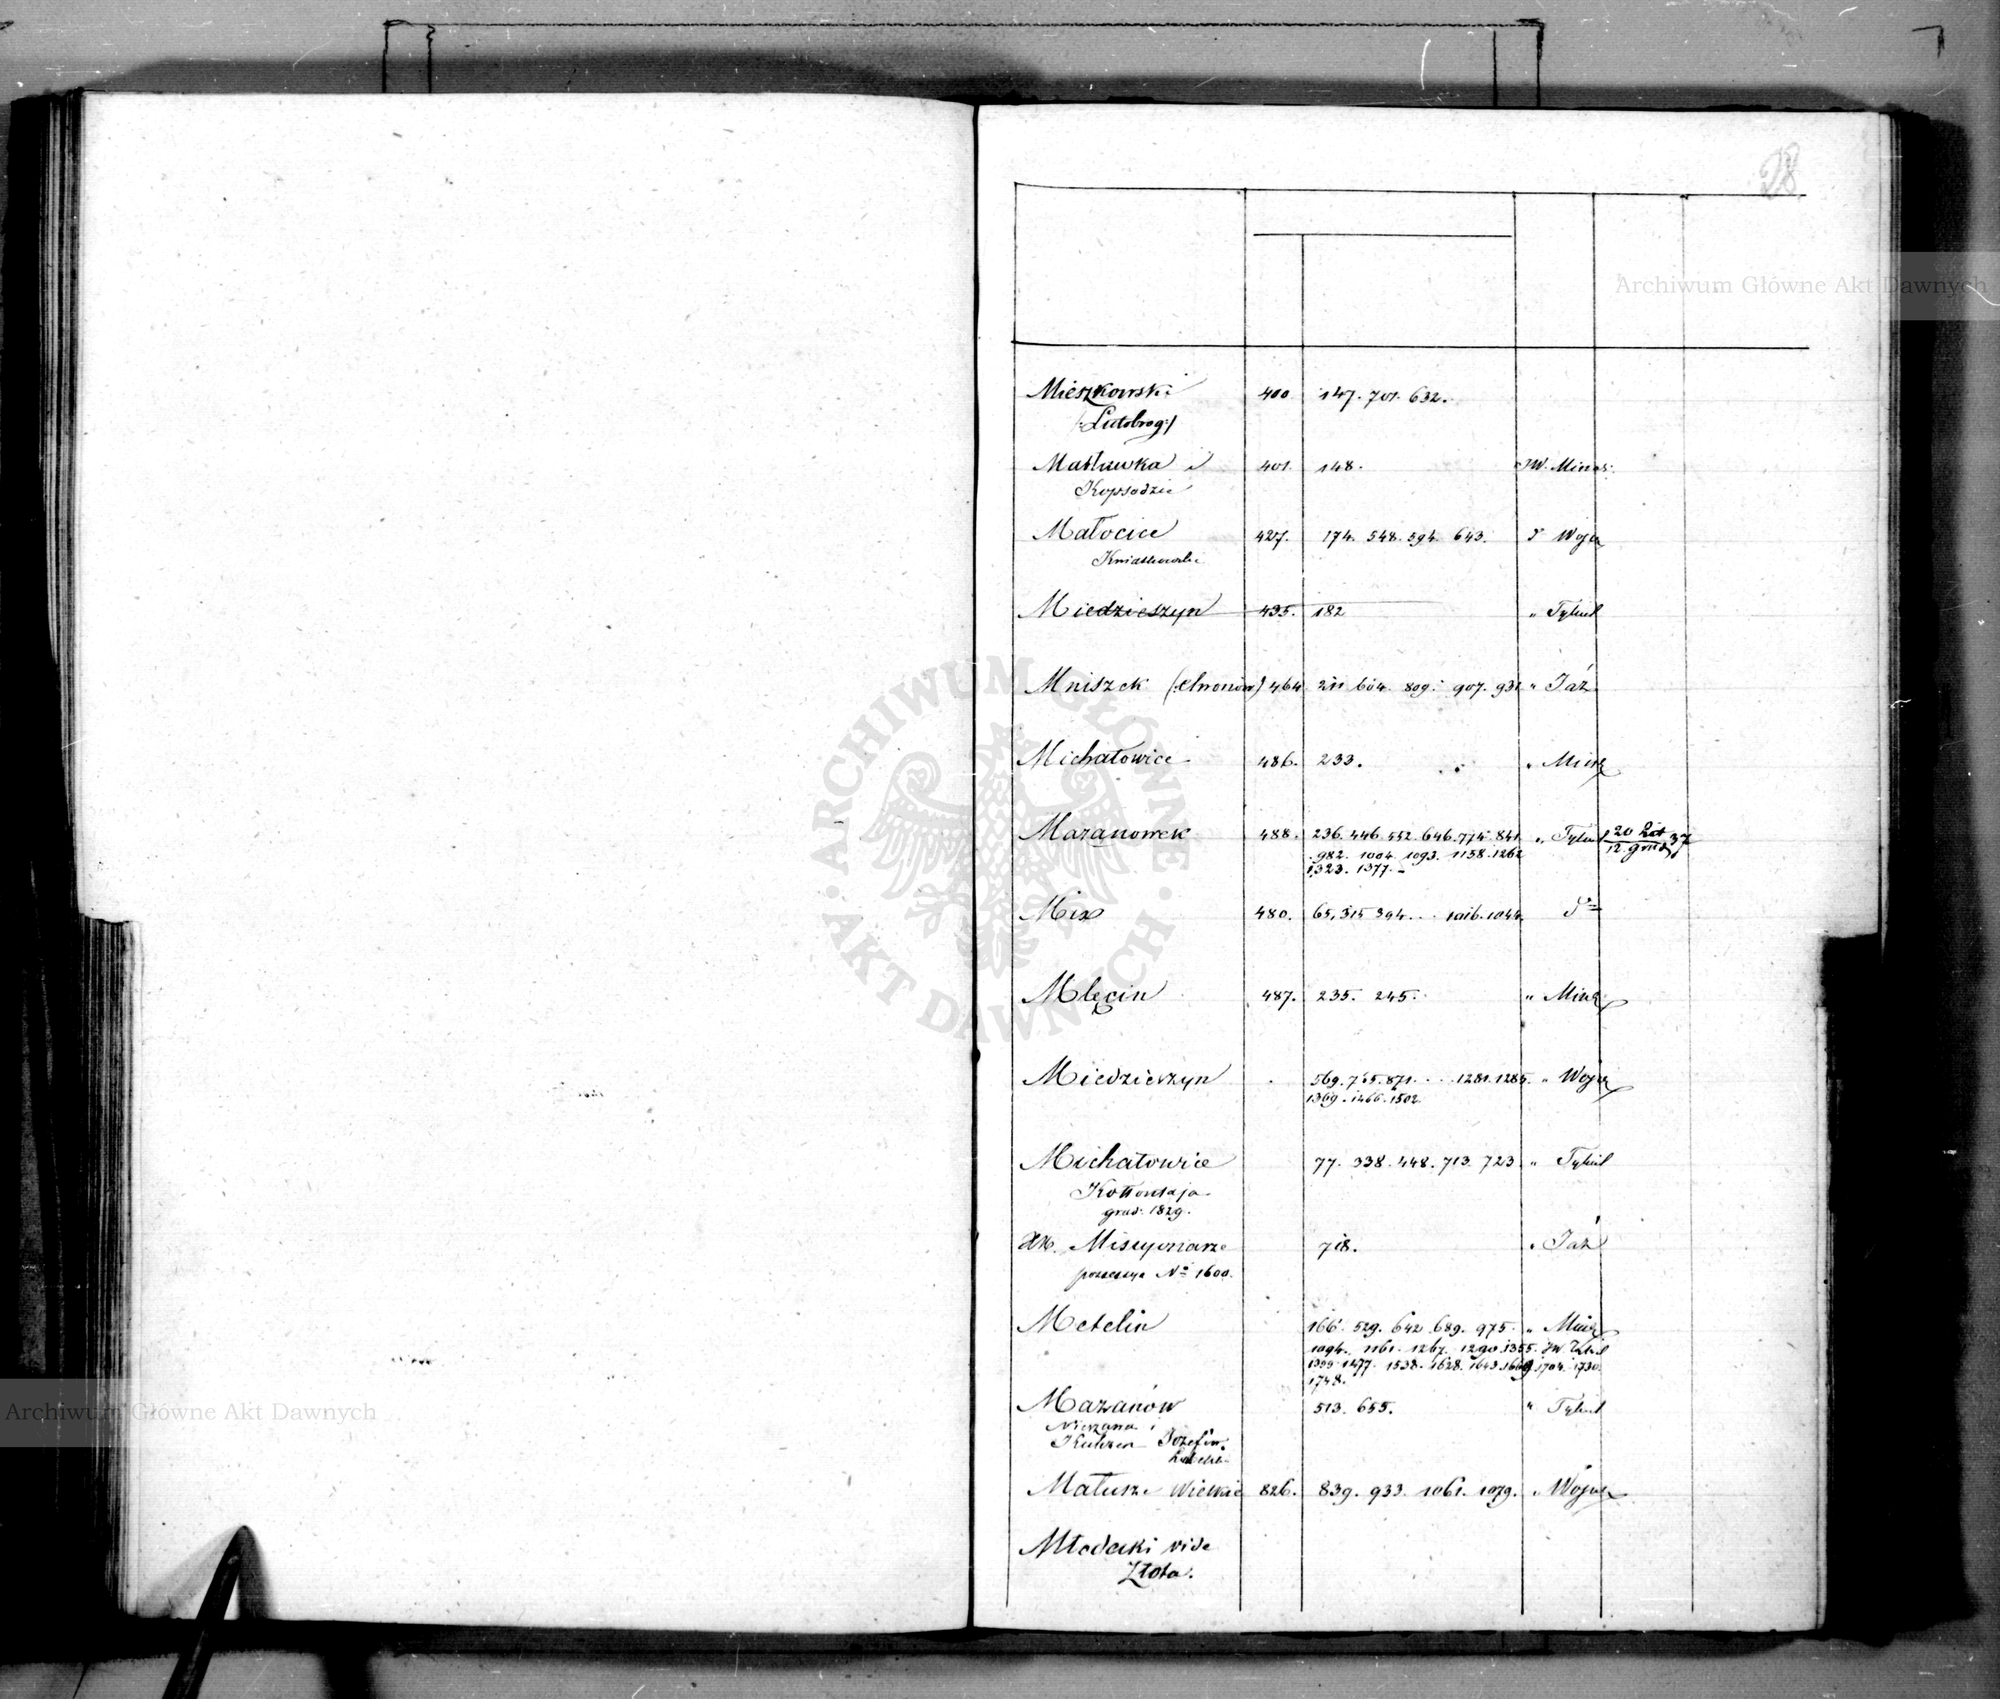 28
Archiwum Główne Akt Dawnych
Mieszkowski 400 147. 701. 632.
/:Lutobrog:/
i 401. 148. JW. Minas.
Małocice 427. 174. 548. 594. 643. Wojcz
Kwiatkowski
Miedzieszyn 435. 182 " Tykiel
Mniszek 464 211 604. 809. 907. 931 " Jaź
Michałowice 486. 233. " Minz
Mazanowek 488. 236. 446. 552. 646. 774. 841. " Tykiel 20 Lut 37
982. 1004. 1093. 1138. 1262 12. grud
1323. 1377. -
Mix 480. 65. 315 394. . . 1016. 1044
Mlęcin 487. 235. 245. " Minz
Miedzieszyn 569. 755. 871. . . . 1281. 1285. " Wojcz
1369. 1466. 1502.
Michałowice 77. 338. 448. 713. 723 " Tykiel
Kołłontaja
grud: 1829.
XX. Missyonarze 718. " Jaź
possessya No 1600.
Metelin 166. 529. 642. 689. 975. " Minz
1094. 1161. 1267. 1290. 1355. JW.
1399. 1477. 1538. 1628. 1643. 1669. 1704. 1730.
1748.
Mazanów 513. 655. " Tykiel
i
Józefin.
Małusze Wielkie 826. 839. 933. 1061. 1079. " Wojcz
Młodecki vide
Złota.
ARCHIWUM GŁÓWNE
AKT DAWNYCH
Archiwum Główne Akt Dawnych